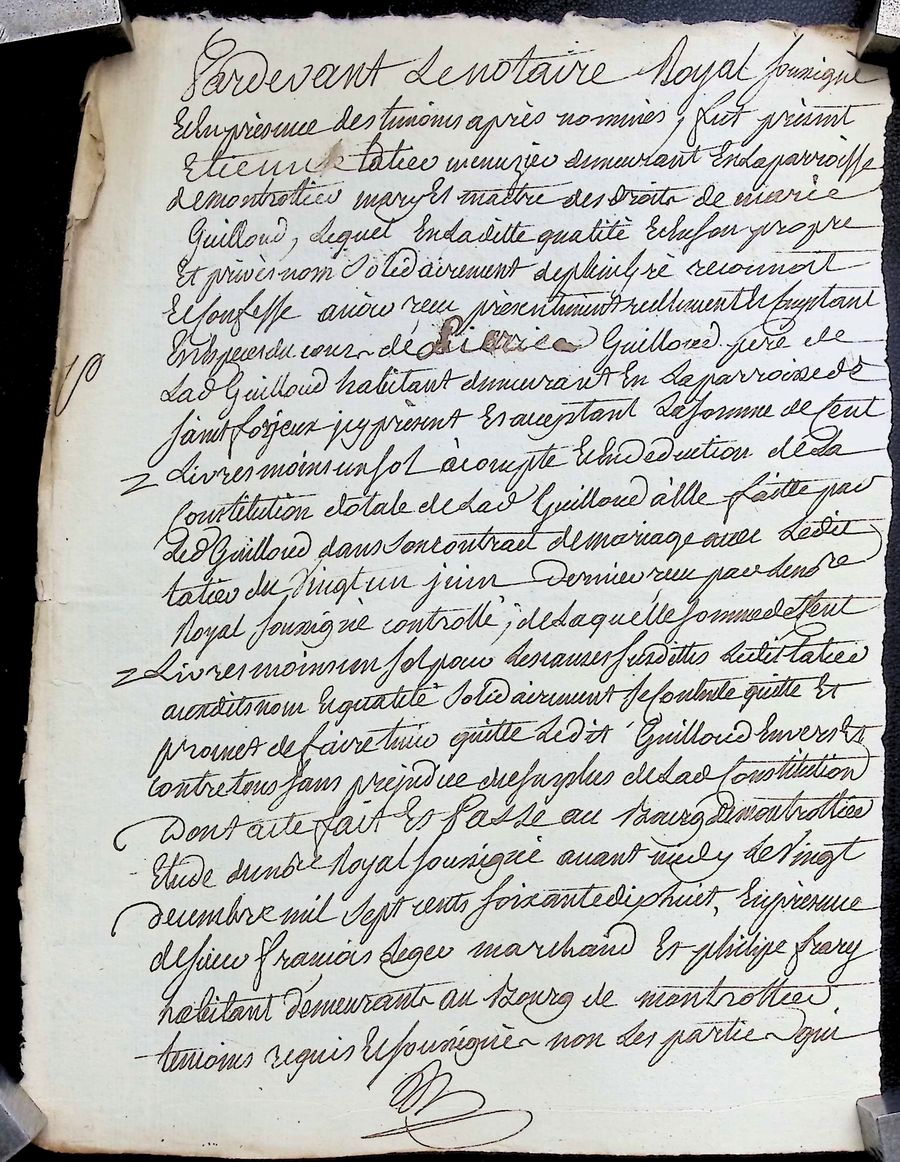 Pardevant Le notaire Royal sousigné
Et En présence des temoins après nommés, fut présent
Etienne tatier menuzier demeurant En La parroisse
de montrottier mary Et maître des Droits de marie
Guilloud, Lequel En La ditte qualité Et En son propre
Et privés nom Solidairement de plein gré reconnoit
Et Confesse avoir reçu présentement reellement Et Comptant
En Especes du cours de Pierre Guilloud père de
La d Guilloud habitant demeurant En La parroisse de
saint foyeux icy présent Et acceptant La somme de Cent
Livres moins un sol à compte Et En deduction de La
Constitution dotale de La d Guilloud à Elle faitte par
Led Guilloud dans son contract de mariage avec Ledit
tatier du vingt un juin dernier reçu par Le nore
Royal sousigné controllé, de Laquelle somme de Cent
Livres moins un sol pour Les causes susdittes Ledit tatier
auxdits nom Et qualité Solidairement se Contente quitte Et
promet de faire tenir quitte Ledit Guilloud Envers Et
contre tous sans prejudice du surplus de La d Constitution
Dont acte fait Et Passé au Bourg de montrottier
Etude du nore Royal sousigné avant midy Le vingt
decembre mil sept cents soixante dix huit, En présence
de sieur françois Leger marchand Et philipe frary
habitant demeurants au Bourg de montrottier
temoins requis Et sousignés non Les parties qui